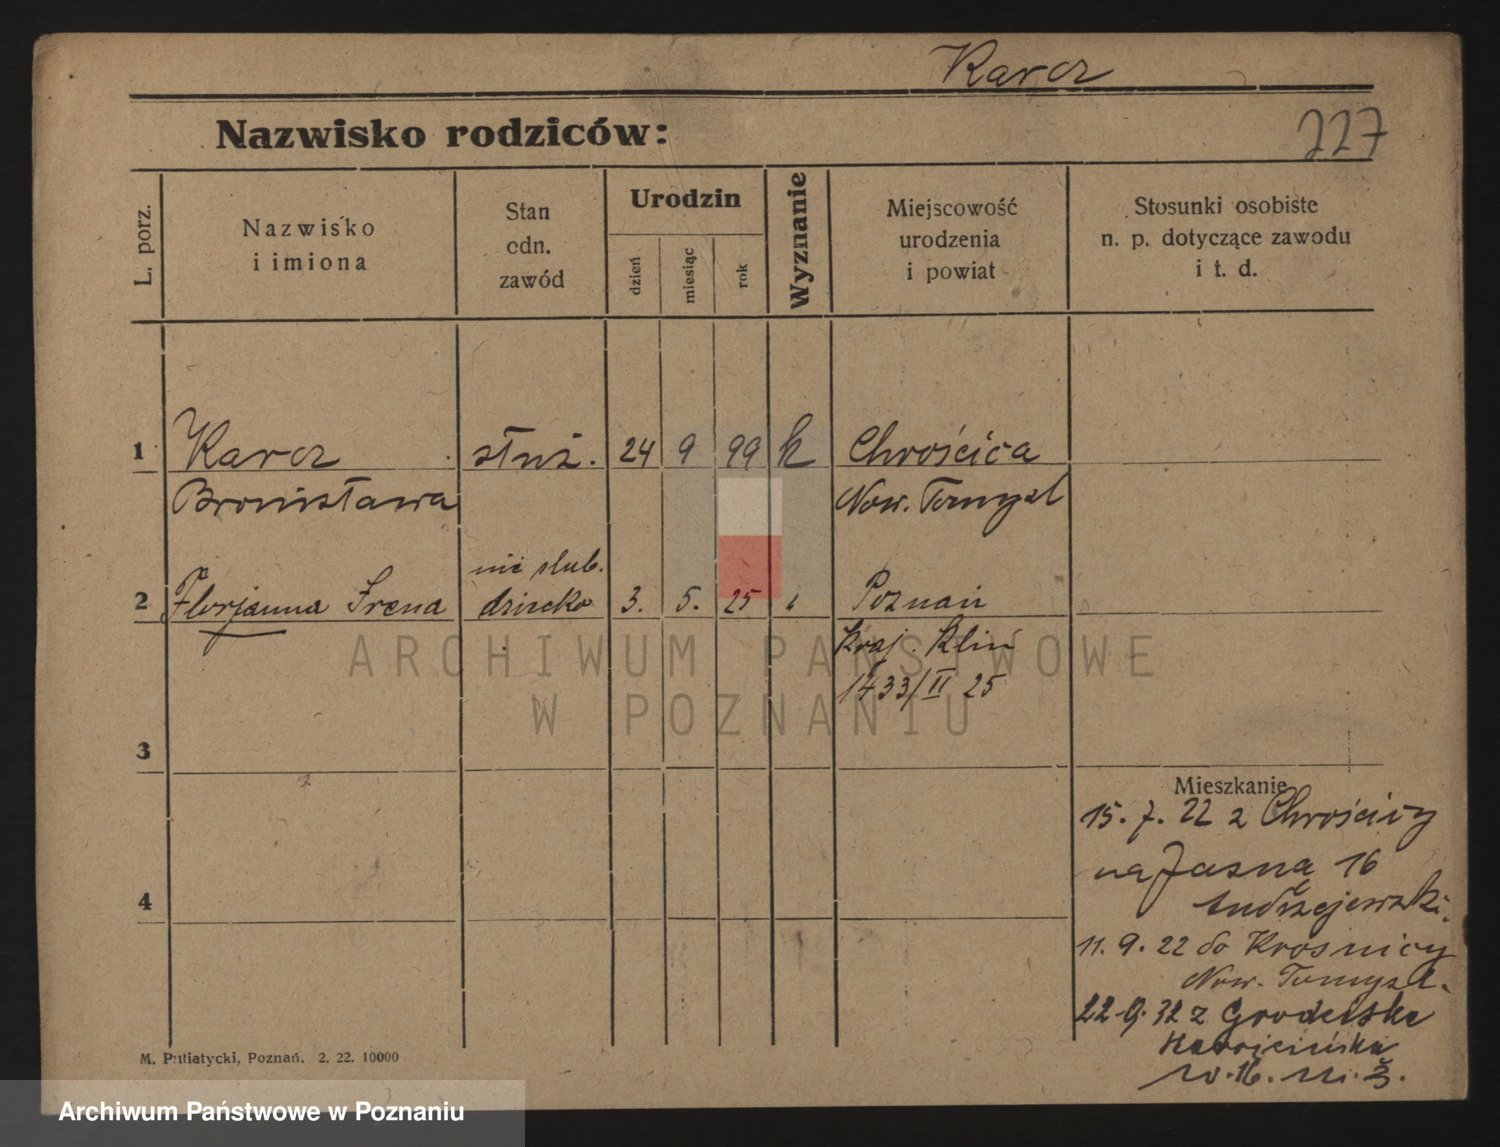 Karcz
227
Nazwisko rodziców:
L. porz.
Nazwisko
i imiona
Stan
odn.
zawód
Urodzin
dzień
miesiąc
rok
Wyznanie
Miejscowość
urodzenia
i powiat
Stosunki osobiste
n. p. dotyczące zawodu
i t. d.
1 Karcz służ. 24 9 99 k Chrościca
Bronisława Now. Tomyśl
nie ślub.
2 Florjanna Irena dziecko 3. 5. 25 Poznań
Kraj. Klin
1433/II 25
3
4
Mieszkanie
15. 7. 22 z Chrościcy
na Jasna 16
Andrzejewski.
11. 9. 22 do Krosnicy
Now. Tomyśl.
22. 9. 32 z Grodziska
16. m. 3.
M. Putiatycki, Poznań. 2. 22. 10000
ARCHIWUM PAŃSTWOWE
W POZNANIU
Archiwum Państwowe w Poznaniu